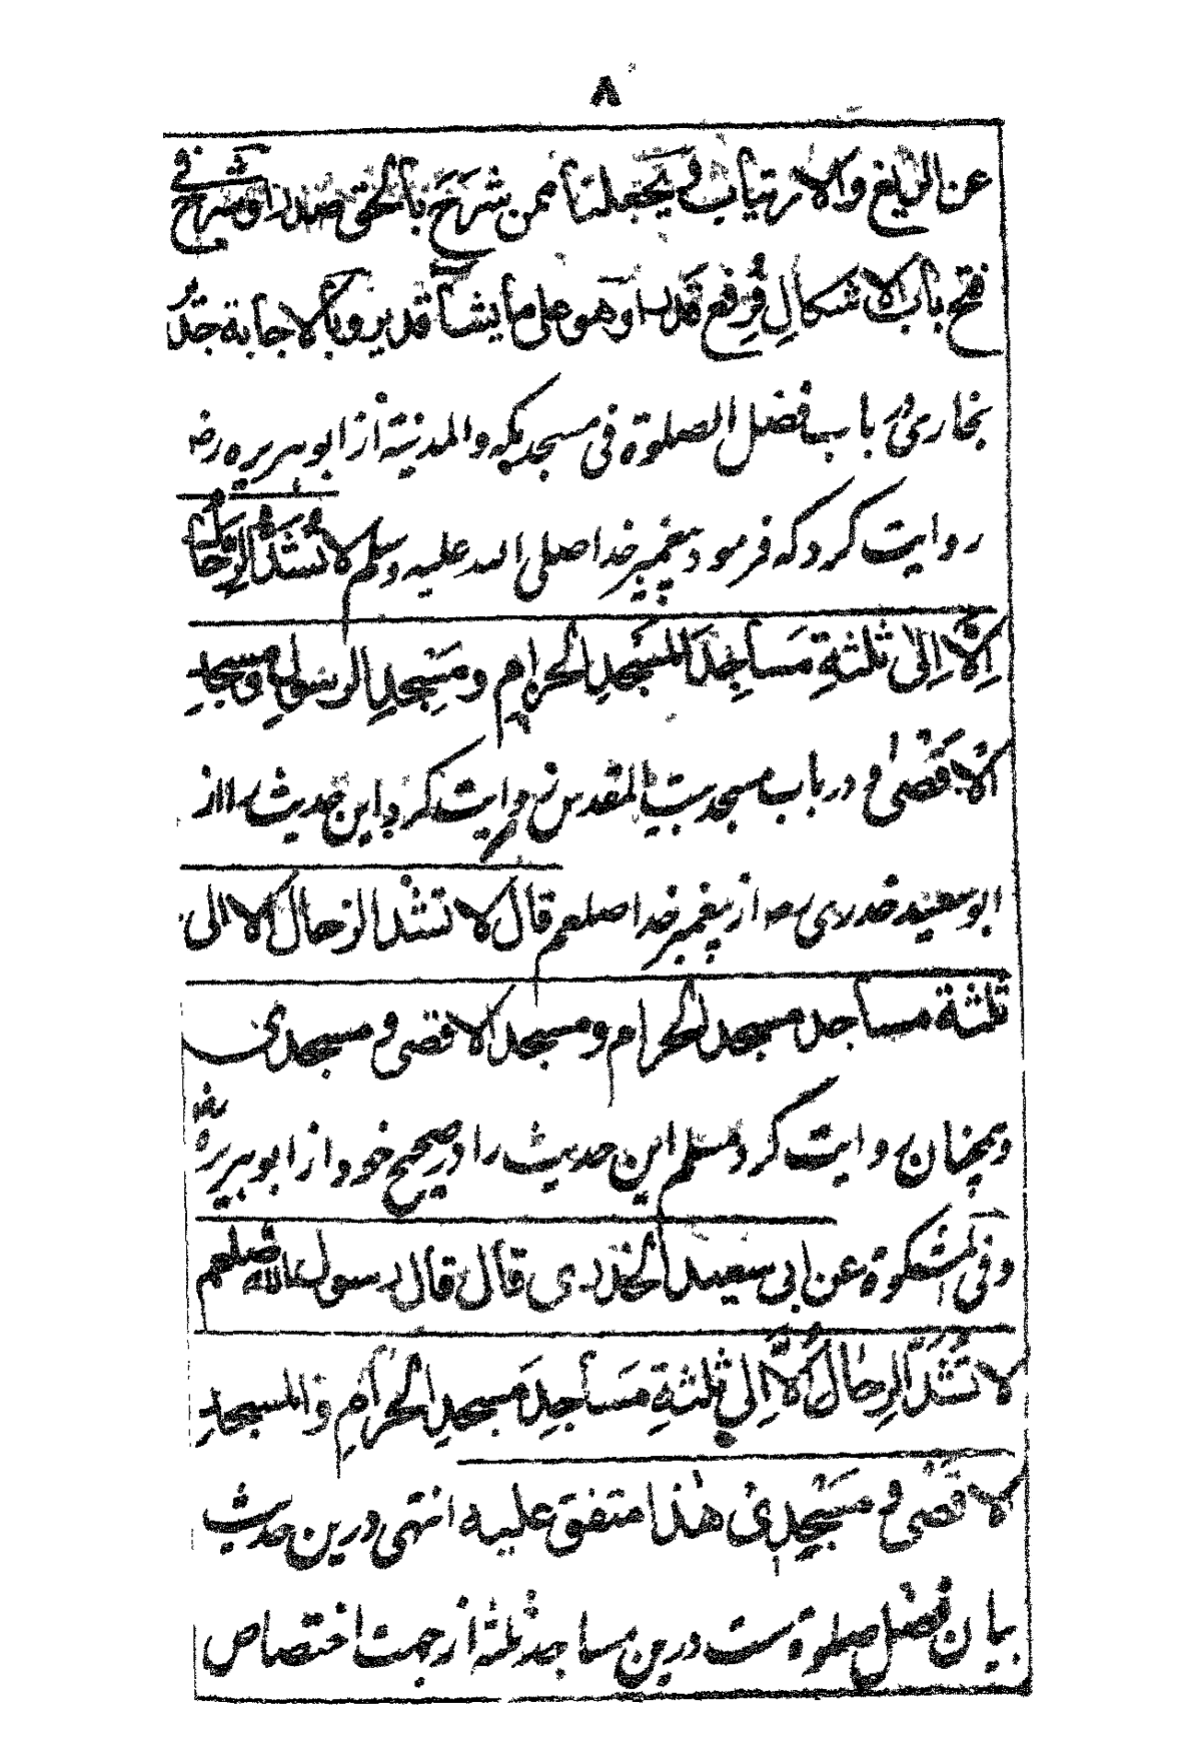 ٨
عن الزيغ والارتياب ويجعلنا ممن شرح بالحق صدرا وشرح في
فتح باب الاشكال ورفع قدرا وهو على ما يشاء قدير وبالاجابة جدير
بخاری در باب فضل الصلوة فی مسجد مکه والمدنیة از ابو هریره رضه
روایت کرد که فرمود پیغمبر خدا صلی الله علیه وسلم لا تُشَدُّ الرِّحَالُ
اِلَّا اِلٰى ثلثةِ مَسَاجِدَ المَسْجِدِ الحرامِ ومَسْجِدِ الرسولِ ومسجدِ
الاَقْصٰى و در باب مسجد بیت المقدس روایت کرد این حدیث را از
ابو سعید خدری رضه از پیغمبر خدا صلعم قال لا تشد الرحال الا الى
ثلثة مساجد مسجد الحرام ومسجد الاقصى ومسجدي
وهمچنان روایت کرد مسلم این حدیث را در صحیح خود از ابو هریره رضه
وفى المشكوة عن ابى سعيد الخدرى قال قال رسول الله صلعم
لا تُشَدُّ الرِحَالُ اِلَّا اِلى ثلثةِ مَسَاجِدَ مَسجدِ الحرَامِ والمسجدِ
الاقصٰى ومَسْجِدِىْ هٰذا متفق عليه انتهى درین حدیث
بیان فضل صلوة ست درین مساجد ثلثه از جهت اختصاص